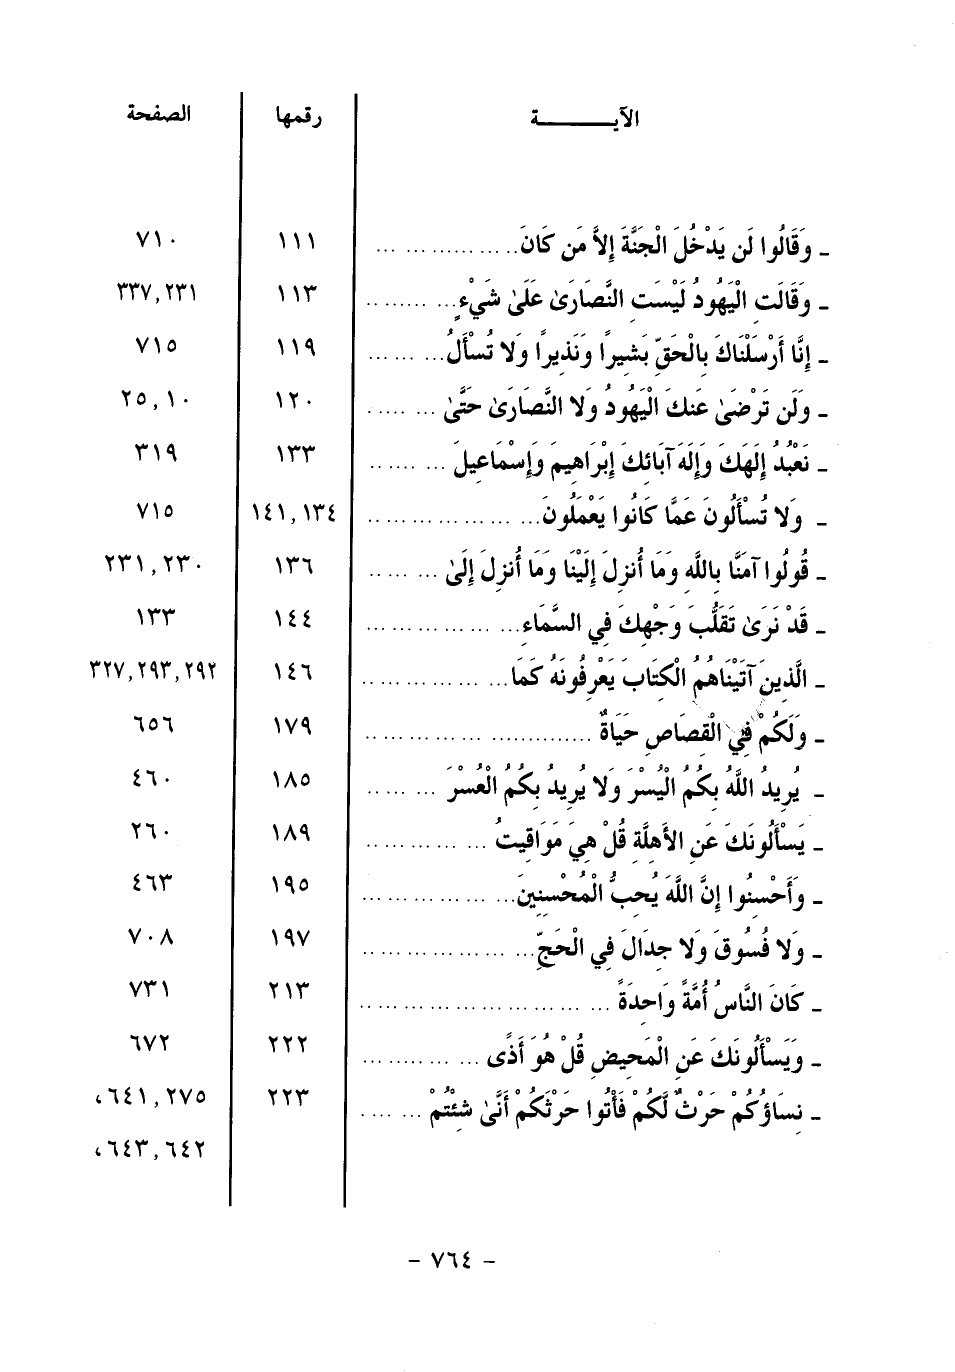 الآيـــــــة رقمها الصفحة
ـ وَقَالُوا لَن يَدْخُلَ الْجَنَّةَ إِلاَّ مَن كَانَ... ... ... ... ... ١١١ ٧١٠
ـ وَقَالَتِ الْيَهُودُ لَيْسَتِ النَّصَارَىٰ عَلَىٰ شَيْءٍ... ... ... .. ١١٣ ٣٣٧,٢٣١
ـ إِنَّا أَرْسَلْنَاكَ بِالْحَقِّ بَشِيراً وَنَذِيراً وَلا تُسْأَلُ... ... ... ١١٩ ٧١٥
ـ وَلَن تَرْضَىٰ عَنكَ الْيَهُودُ وَلا النَّصَارَىٰ حَتَّىٰ ... ..... . ١٢٠ ٢٥,١٠
ـ نَعْبُدُ إِلَهَكَ وَإِلَهَ آبَائِكَ إِبْرَاهِيمَ وَإِسْمَاعِيلَ ... ..... .. ١٣٣ ٣١٩
ـ وَلا تُسْأَلُونَ عَمَّا كَانُوا يَعْمَلُونَ... ... ... ... ... ... .. ١٤١,١٣٤ ٧١٥
ـ قُولُوا آمَنَّا بِاللَّهِ وَمَا أُنزِلَ إِلَيْنَا وَمَا أُنزِلَ إِلَىٰ ... ... .. ١٣٦ ٢٣١,٢٣٠
ـ قَدْ نَرَىٰ تَقَلُّبَ وَجْهِكَ فِي السَّمَاءِ... ... ... ... ... ... ١٤٤ ١٣٣
ـ الَّذِينَ آتَيْنَاهُمُ الْكِتَابَ يَعْرِفُونَهُ كَمَا... ... ... ... ... .. ١٤٦ ٣٢٧,٢٩٣,٢٩٢
ـ وَلَكُمْ فِي الْقِصَاصِ حَيَاةٌ ............. ... ... ... ... .. ١٧٩ ٦٥٦
ـ يُرِيدُ اللَّهُ بِكُمُ الْيُسْرَ وَلا يُرِيدُ بِكُمُ الْعُسْرَ ... ... .. ١٨٥ ٤٦٠
ـ يَسْأَلُونَكَ عَنِ الأَهِلَّةِ قُلْ هِيَ مَوَاقِيتُ ... ... ... ... .. ١٨٩ ٢٦٠
ـ وَأَحْسِنُوا إِنَّ اللَّهَ يُحِبُّ الْمُحْسِنِينَ... ... ... ... ... ... ١٩٥ ٤٦٣
ـ وَلا فُسُوقَ وَلا جِدَالَ فِي الْحَجِّ... ... ... ... ... ... .. ١٩٧ ٧٠٨
ـ كَانَ النَّاسُ أُمَّةً وَاحِدَةً ... ... ... ... ... ... ... ... ... .. ٢١٣ ٧٣١
ـ وَيَسْأَلُونَكَ عَنِ الْمَحِيضِ قُلْ هُوَ أَذًى ... ... ..... ... ٢٢٢ ٦٧٢
ـ نِسَاؤُكُمْ حَرْثٌ لَّكُمْ فَأْتُوا حَرْثَكُمْ أَنَّىٰ شِئْتُمْ ... ... . ٢٢٣ ٦٤١,٢٧٥،
٦٤٣,٦٤٢،
- ٧٦٤ -